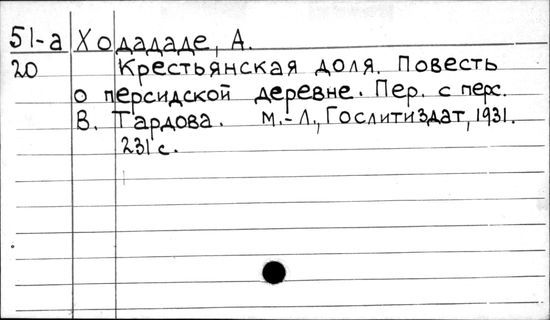 51-а Ходададе, А.
20 Крестьянская доля. Повесть
о персидской деревне. Пер. с перс.
В. Тардова. М.-Л., Гослитиздат, 1931.
231 с.